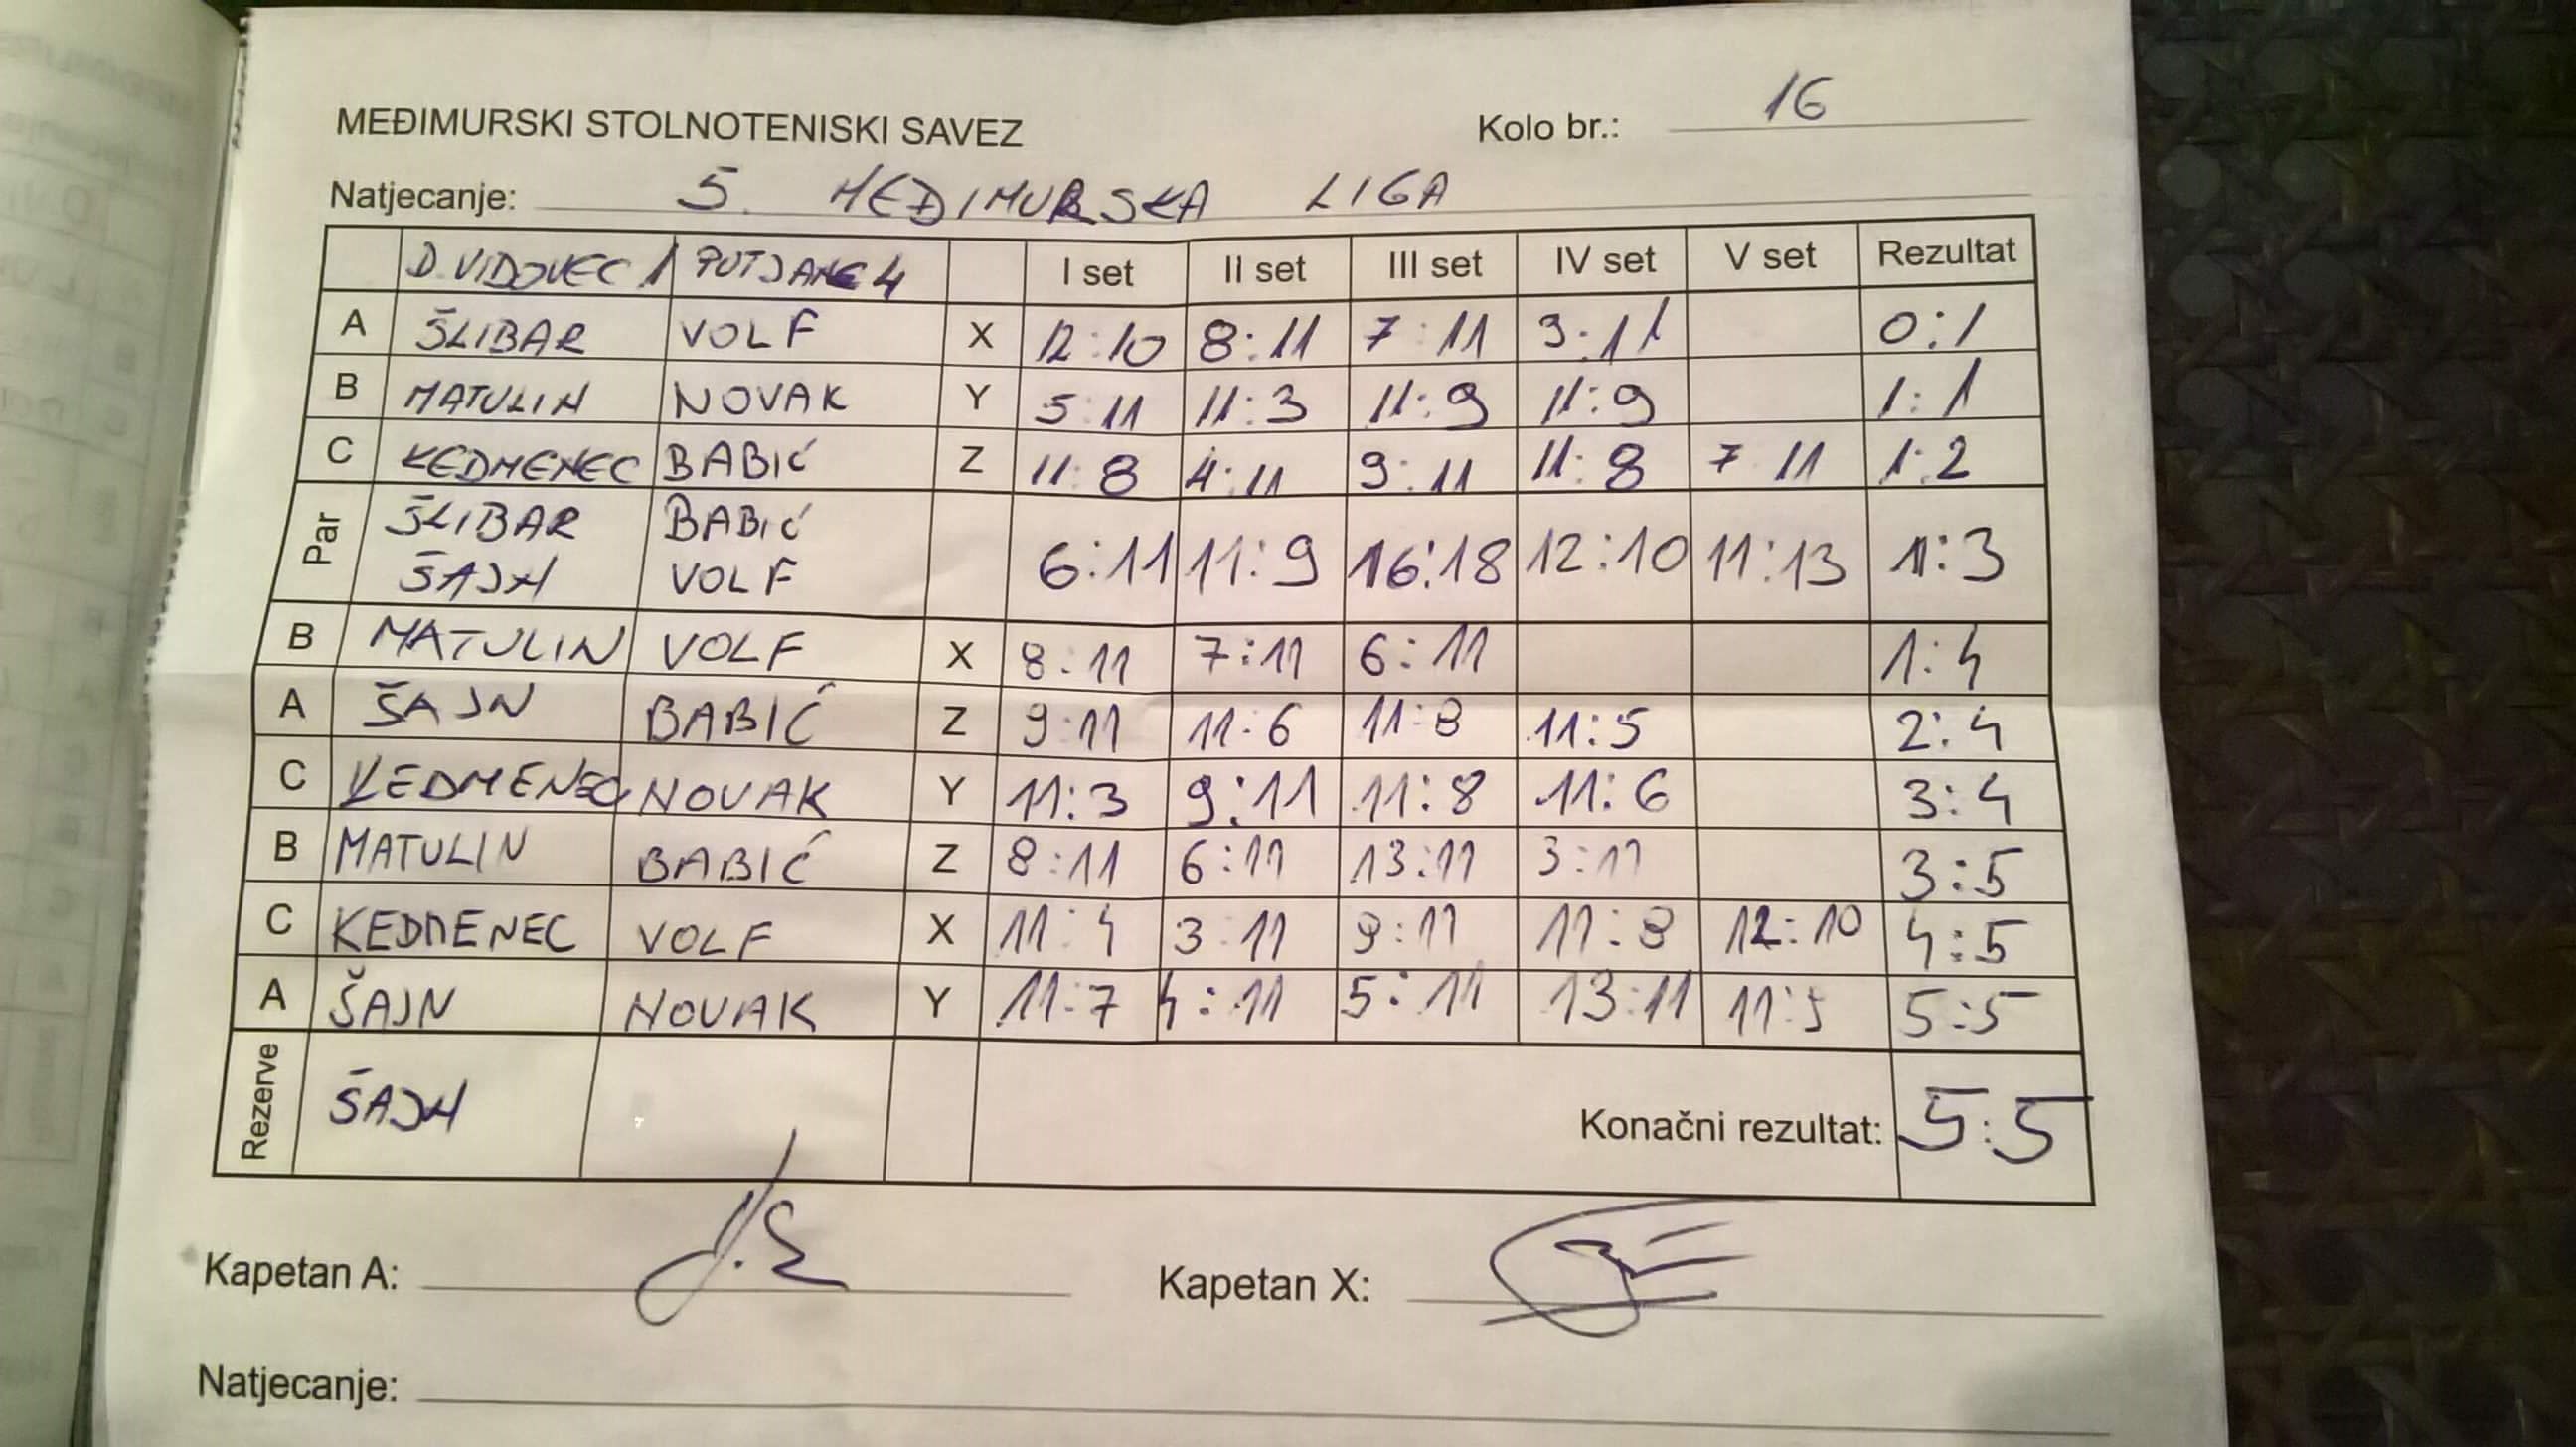 MEĐIMURSKI STOLNOTENISKI SAVEZ Kolo br.: 16
Natjecanje: 5. MEĐIMURSKA LIGA
D. VIDOVEC 1 PUTJANE 4 I set II set III set IV set V set Rezultat
A ŠLIBAR VOLF X 12:10 8:11 7:11 9:11 0:1
B MATULIN NOVAK Y 5:11 11:3 11:9 11:9 1:1
C KEDMENEC BABIĆ Z 11:8 4:11 9:11 11:8 7:11 1:2
Par ŠLIBAR BABIĆ
ŠAJN VOLF 6:11 11:9 16:18 12:10 11:13 1:3
B MATULIN VOLF X 8:11 7:11 6:11 1:4
A ŠAJN BABIĆ Z 9:11 11:6 11:8 11:5 2:4
C KEDMENEC NOVAK Y 11:3 9:11 11:8 11:6 3:4
B MATULIN BABIĆ Z 8:11 6:11 13:11 3:11 3:5
C KEDMENEC VOLF X 11:4 3:11 9:11 11:8 12:10 4:5
A ŠAJN NOVAK Y 11:7 4:11 5:11 13:11 11:5 5:5
Rezerve ŠAJN Konačni rezultat: 5:5
Kapetan A: Kapetan X:
Natjecanje: